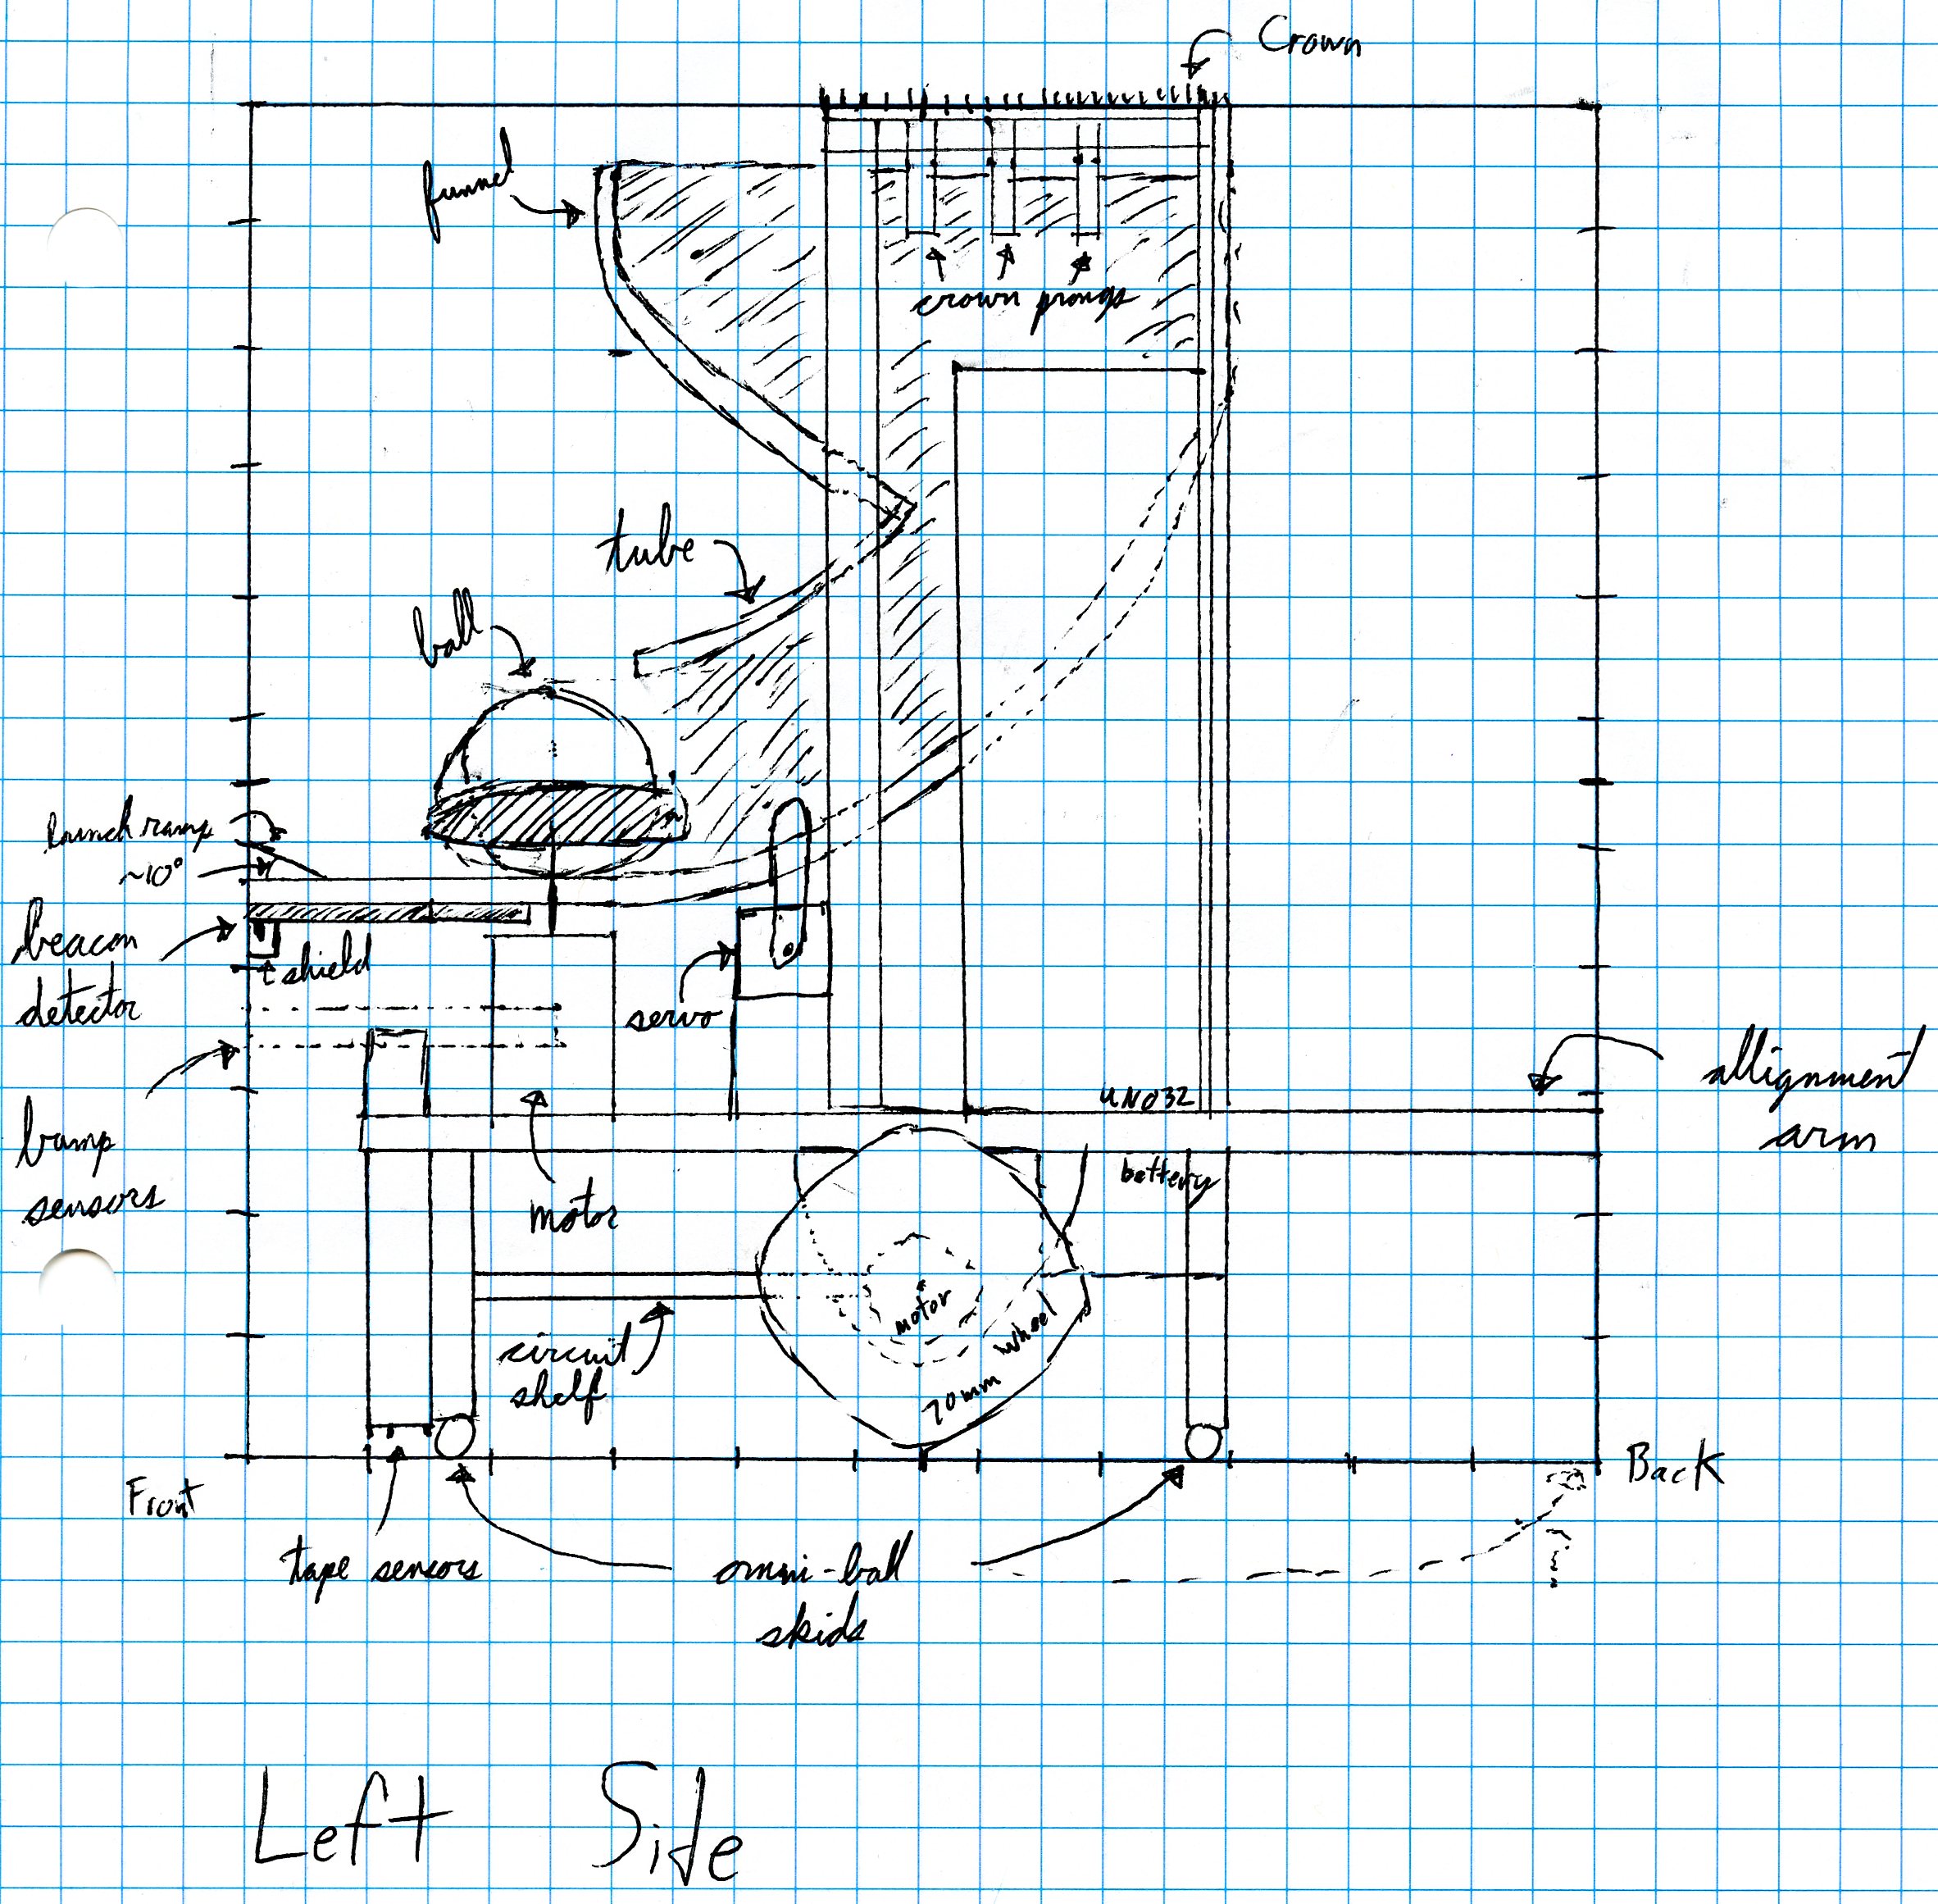 Crown
funnel
crown prongs
tube
ball
launch ramp
~10°
beacon
detector
shield
servo
bump
sensors
UNO32
allignment
arm
motor
battery
circuit
shelf
motor
wheel
70mm
Front
Back
tape sensors
omni-ball
skids
?
Left Side